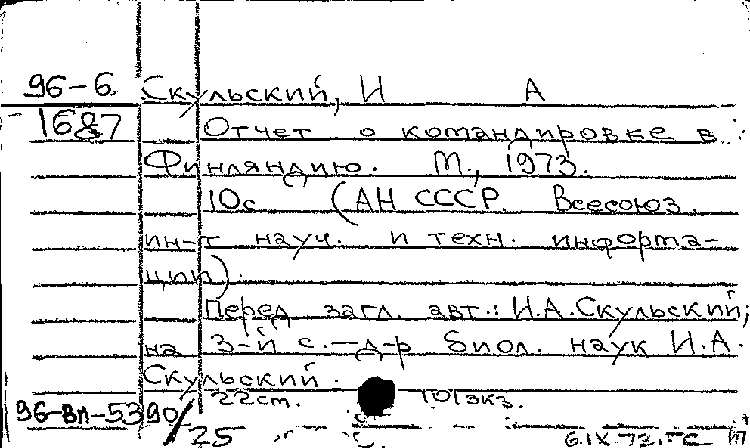 96-6 Скульский, И А
1687 Отчет о командировке в
Финляндию. М., 1973.
10с (АН СССР. Всесоюз.
ин-т науч. и техн. информа-
ции).
Перед загл. авт.: И.А.Скульский,
на 3-й с. — д-р биол. наук И.А.
Скульский.
22см. 101экз.
96-вл-5390/25